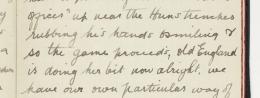 officer" up near the Huns trenches
rubbing his hands & smiling &
so the game proceeds, old England
is doing her bit now alright, we
have our own particular way of